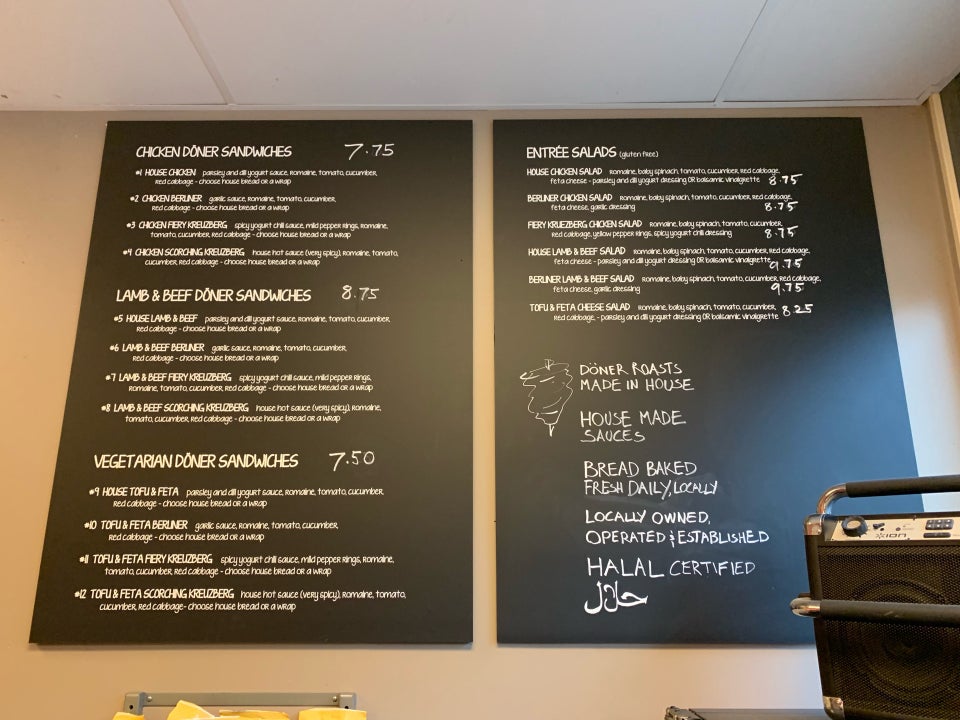 CHICKEN DÖNER SANDWICHES 7.75
#1 HOUSE CHICKEN parsley and dill yogurt sauce, romaine, tomato, cucumber,
red cabbage - choose house bread or a wrap
#2 CHICKEN BERLINER garlic sauce, romaine, tomato, cucumber,
red cabbage - choose house bread or a wrap
#3 CHICKEN FIERY KREUZBERG spicy yogurt chili sauce, mild pepper rings, romaine,
tomato, cucumber, red cabbage - choose house bread or a wrap
#4 CHICKEN SCORCHING KREUZBERG house hot sauce (very spicy), romaine, tomato,
cucumber, red cabbage - choose house bread or a wrap
LAMB & BEEF DÖNER SANDWICHES 8.75
#5 HOUSE LAMB & BEEF parsley and dill yogurt sauce, romaine, tomato, cucumber,
red cabbage - choose house bread or a wrap
#6 LAMB & BEEF BERLINER garlic sauce, romaine, tomato, cucumber,
red cabbage - choose house bread or a wrap
#7 LAMB & BEEF FIERY KREUZBERG spicy yogurt chili sauce, mild pepper rings,
romaine, tomato, cucumber, red cabbage - choose house bread or a wrap
#8 LAMB & BEEF SCORCHING KREUZBERG house hot sauce (very spicy), romaine,
tomato, cucumber, red cabbage - choose house bread or a wrap
VEGETARIAN DÖNER SANDWICHES 7.50
#9 HOUSE TOFU & FETA parsley and dill yogurt sauce, romaine, tomato, cucumber,
red cabbage - choose house bread or a wrap
#10 TOFU & FETA BERLINER garlic sauce, romaine, tomato, cucumber,
red cabbage - choose house bread or a wrap
#11 TOFU & FETA FIERY KREUZBERG spicy yogurt chili sauce, mild pepper rings, romaine,
tomato, cucumber, red cabbage - choose house bread or a wrap
#12 TOFU & FETA SCORCHING KREUZBERG house hot sauce (very spicy), romaine, tomato,
cucumber, red cabbage - choose house bread or a wrap
ENTRÉE SALADS (gluten free)
HOUSE CHICKEN SALAD romaine, baby spinach, tomato, cucumber, red cabbage,
feta cheese - parsley and dill yogurt dressing OR balsamic vinaigrette 8.75
BERLINER CHICKEN SALAD romaine, baby spinach, tomato, cucumber, red cabbage,
feta cheese, garlic dressing 8.75
FIERY KRUEZBERG CHICKEN SALAD romaine, baby spinach, tomato, cucumber,
red cabbage, yellow pepper rings, spicy yogurt chili dressing 8.75
HOUSE LAMB & BEEF SALAD romaine, baby spinach, tomato, cucumber, red cabbage,
feta cheese - parsley and dill yogurt dressing OR balsamic vinaigrette 9.75
BERLINER LAMB & BEEF SALAD romaine, baby spinach, tomato, cucumber, red cabbage,
feta cheese, garlic dressing 9.75
TOFU & FETA CHEESE SALAD romaine, baby spinach, tomato, cucumber,
red cabbage, - parsley and dill yogurt dressing OR balsamic vinaigrette 8.25
DÖNER ROASTS
MADE IN HOUSE
HOUSE MADE
SAUCES
BREAD BAKED
FRESH DAILY, LOCALLY
LOCALLY OWNED,
OPERATED & ESTABLISHED
HALAL CERTIFIED
حلال
ION